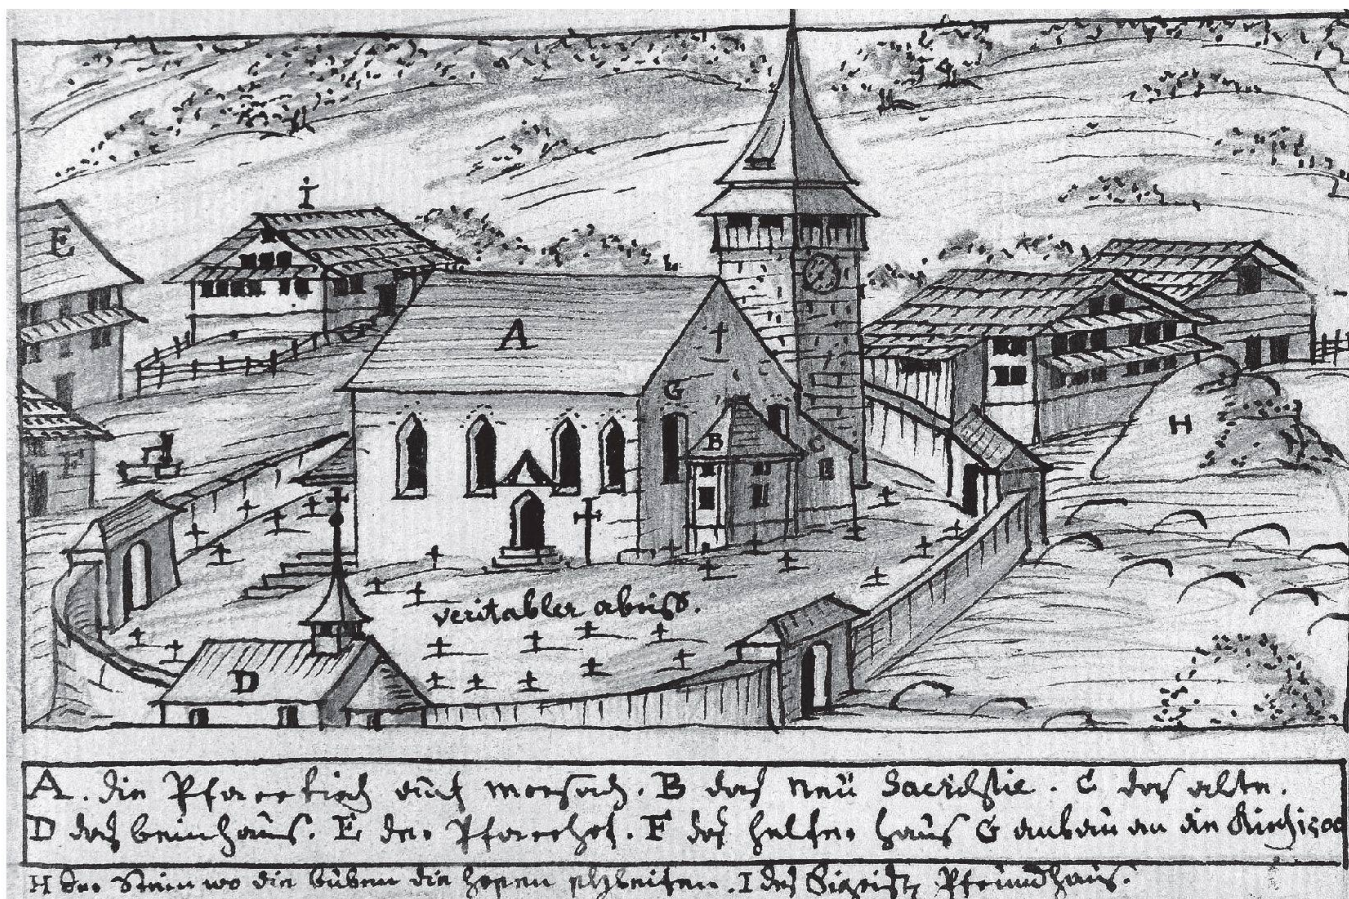 I
E
A
G
B
C
H
F
veritabler abriss.
D
A. die Pfarrkirch morsach. B das neü Sacristie. C das alte.
D das beinhaüs. E der Pfarrhof. F des helfer haüs G anbaü an die Kirch 1500
H der Stein wo die büben die hosen. I des Sigristz Pfrundhaüs.